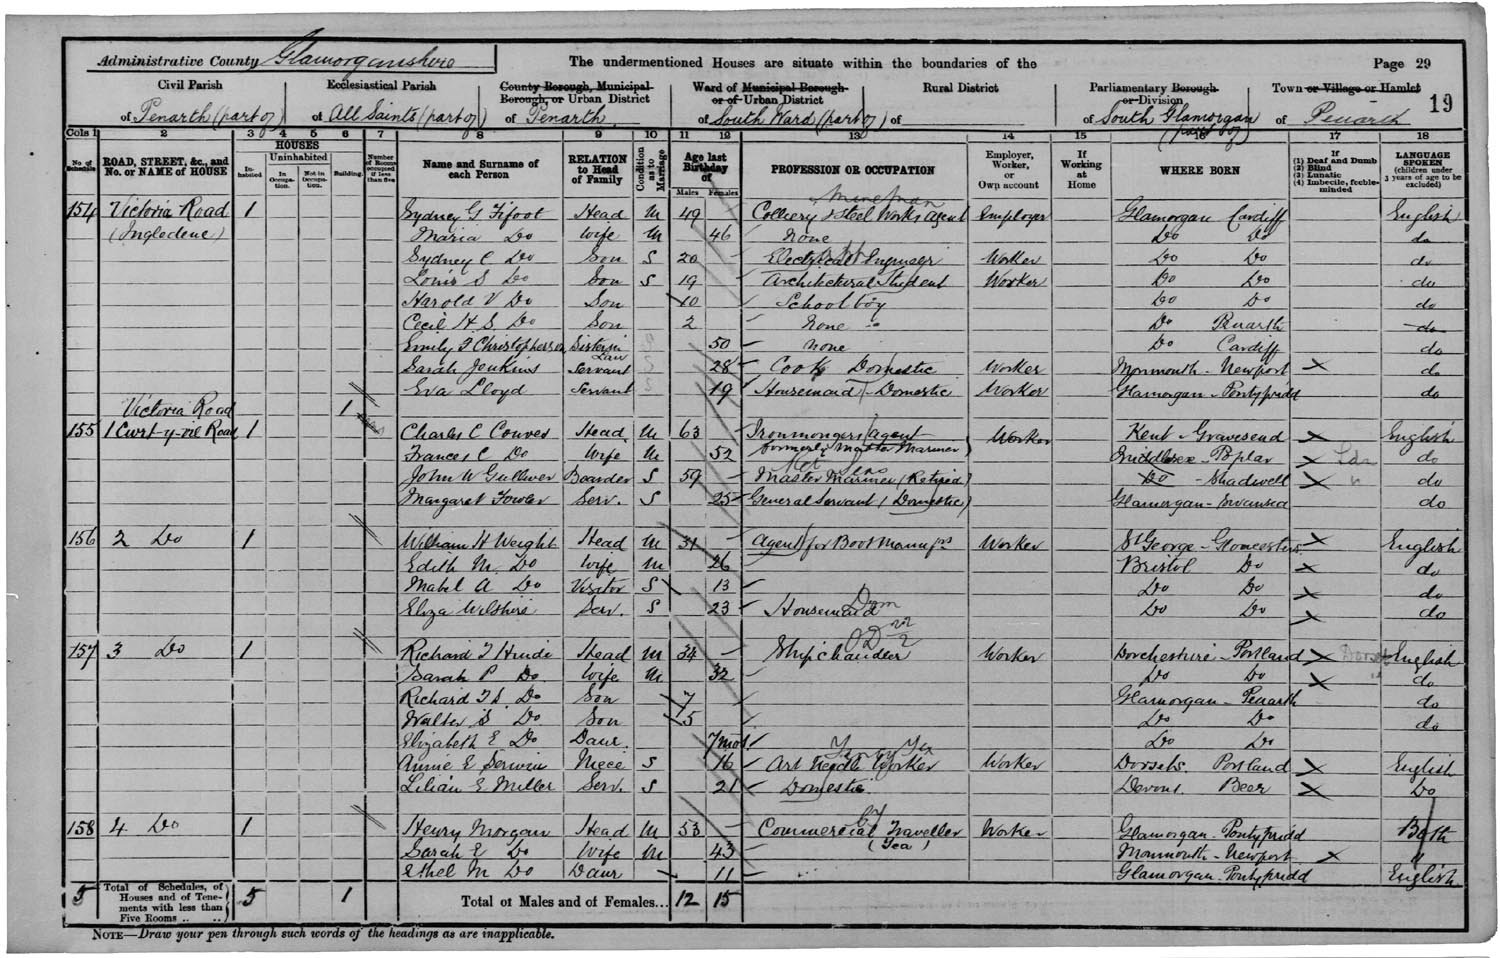 Administrative County Glamorganshire The undermentioned Houses are situate within the boundaries of the Page 29
Civil Parish Ecclesiastical Parish County Borough, Municipal Borough, or Urban District Ward of Municipal Borough or of Urban District Rural District Parliamentary Borough or Division Town or Village or Hamlet 19
of Penarth (part of) of All Saints (part of) of Penarth of South Ward (part of) of of South Glamorgan (part of) of Penarth
Cols 1 2 3 4 5 6 7 8 9 10 11 12 13 14 15 16 17 18
No. of Schedule ROAD, STREET, &c., and No. or NAME of HOUSE HOUSES Inhabited Uninhabited In Occupation. Not in Occupation. Building. Number of Rooms occupied if less than five Name and Surname of each Person RELATION to Head of Family Condition as to Marriage Age last Birthday of Males Females PROFESSION OR OCCUPATION Employer, Worker, or Own account If Working at Home WHERE BORN If (1) Deaf and Dumb (2) Blind (3) Lunatic (4) Imbecile, feeble-minded LANGUAGE SPOKEN (children under 3 years of age to be excluded)
154 Victoria Road 1 Sydney G Fifoot Head M 49 Colliery & Steel Works Agent Employer Glamorgan Cardiff English
(Ingledene) Maria Do Wife M 46 None Do Do do
Sydney C Do Son S 20 Electrical Engineer Worker Do Do do
Louis S Do Son S 19 Architectural Student Worker Do Do do
Harold V Do Son 10 School boy Do Do do
Cecil H. S. Do Son 2 None Do Penarth do
Emily F Christopherson Sister in Law 50 None Do Cardiff do
Sarah Jenkins Servant 28 Cook Domestic Worker Monmouth - Newport X do
Eva Lloyd Servant 19 Housemaid - Domestic Worker Glamorgan - Pontypridd do
Victoria Road 1
155 1 Cwrt-y-vil Road 1 Charles C Couves Head M 63 Ironmongers agent Worker Kent - Gravesend X English
Frances C Do Wife M 52 formerly Master Mariner) Middlesex - Poplar X Ldn do
John W Gulliver Boarder S 59 Master Mariner (Retired) Do - Shadwell X do
Margaret Fowler Serv. S 25 General Servant (Domestic) Glamorgan - Swansea do
156 2 Do 1 William H Weight Head M 31 Agent for Boot Manufrs Worker St George - Gloucesters X English
Edith M. Do Wife M 26 Bristol Do X do
Mabel A Do Visitor S 13 Do Do X do
Eliza Wilshire Serv. S 23 Housemaid Dom Do Do X do
157 3 Do 1 Richard T Hinde Head M 34 Ship chandler Worker Dorchestire - Portland X Dorset English
Sarah P Do. Wife M 32 Do Do X do
Richard T. S. Do Son 7 Glamorgan - Penarth do
Walter S Do Son 5 Do Do do
Elizabeth E Do Daur. 7 mos Do Do
Annie E Serwin Niece S 16 Art Needle Worker Worker Dorsets. Portland X English
Lilian E Miller Serv. S 21 Domestic Devons. Beer X Do
158 4 Do 1 Henry Morgan Head M 53 Commercial Traveller Worker Glamorgan - Pontypridd Both
Sarah E Do Wife M 43 (Tea) Monmouth - Newport X "
Ethel M Do Daur 11 Glamorgan - Pontypridd English
5 Total of Schedules, of Houses and of Tenements with less than Five Rooms .. .. 5 1 Total of Males and of Females... 12 15
NOTE—Draw your pen through such words of the headings as are inapplicable.